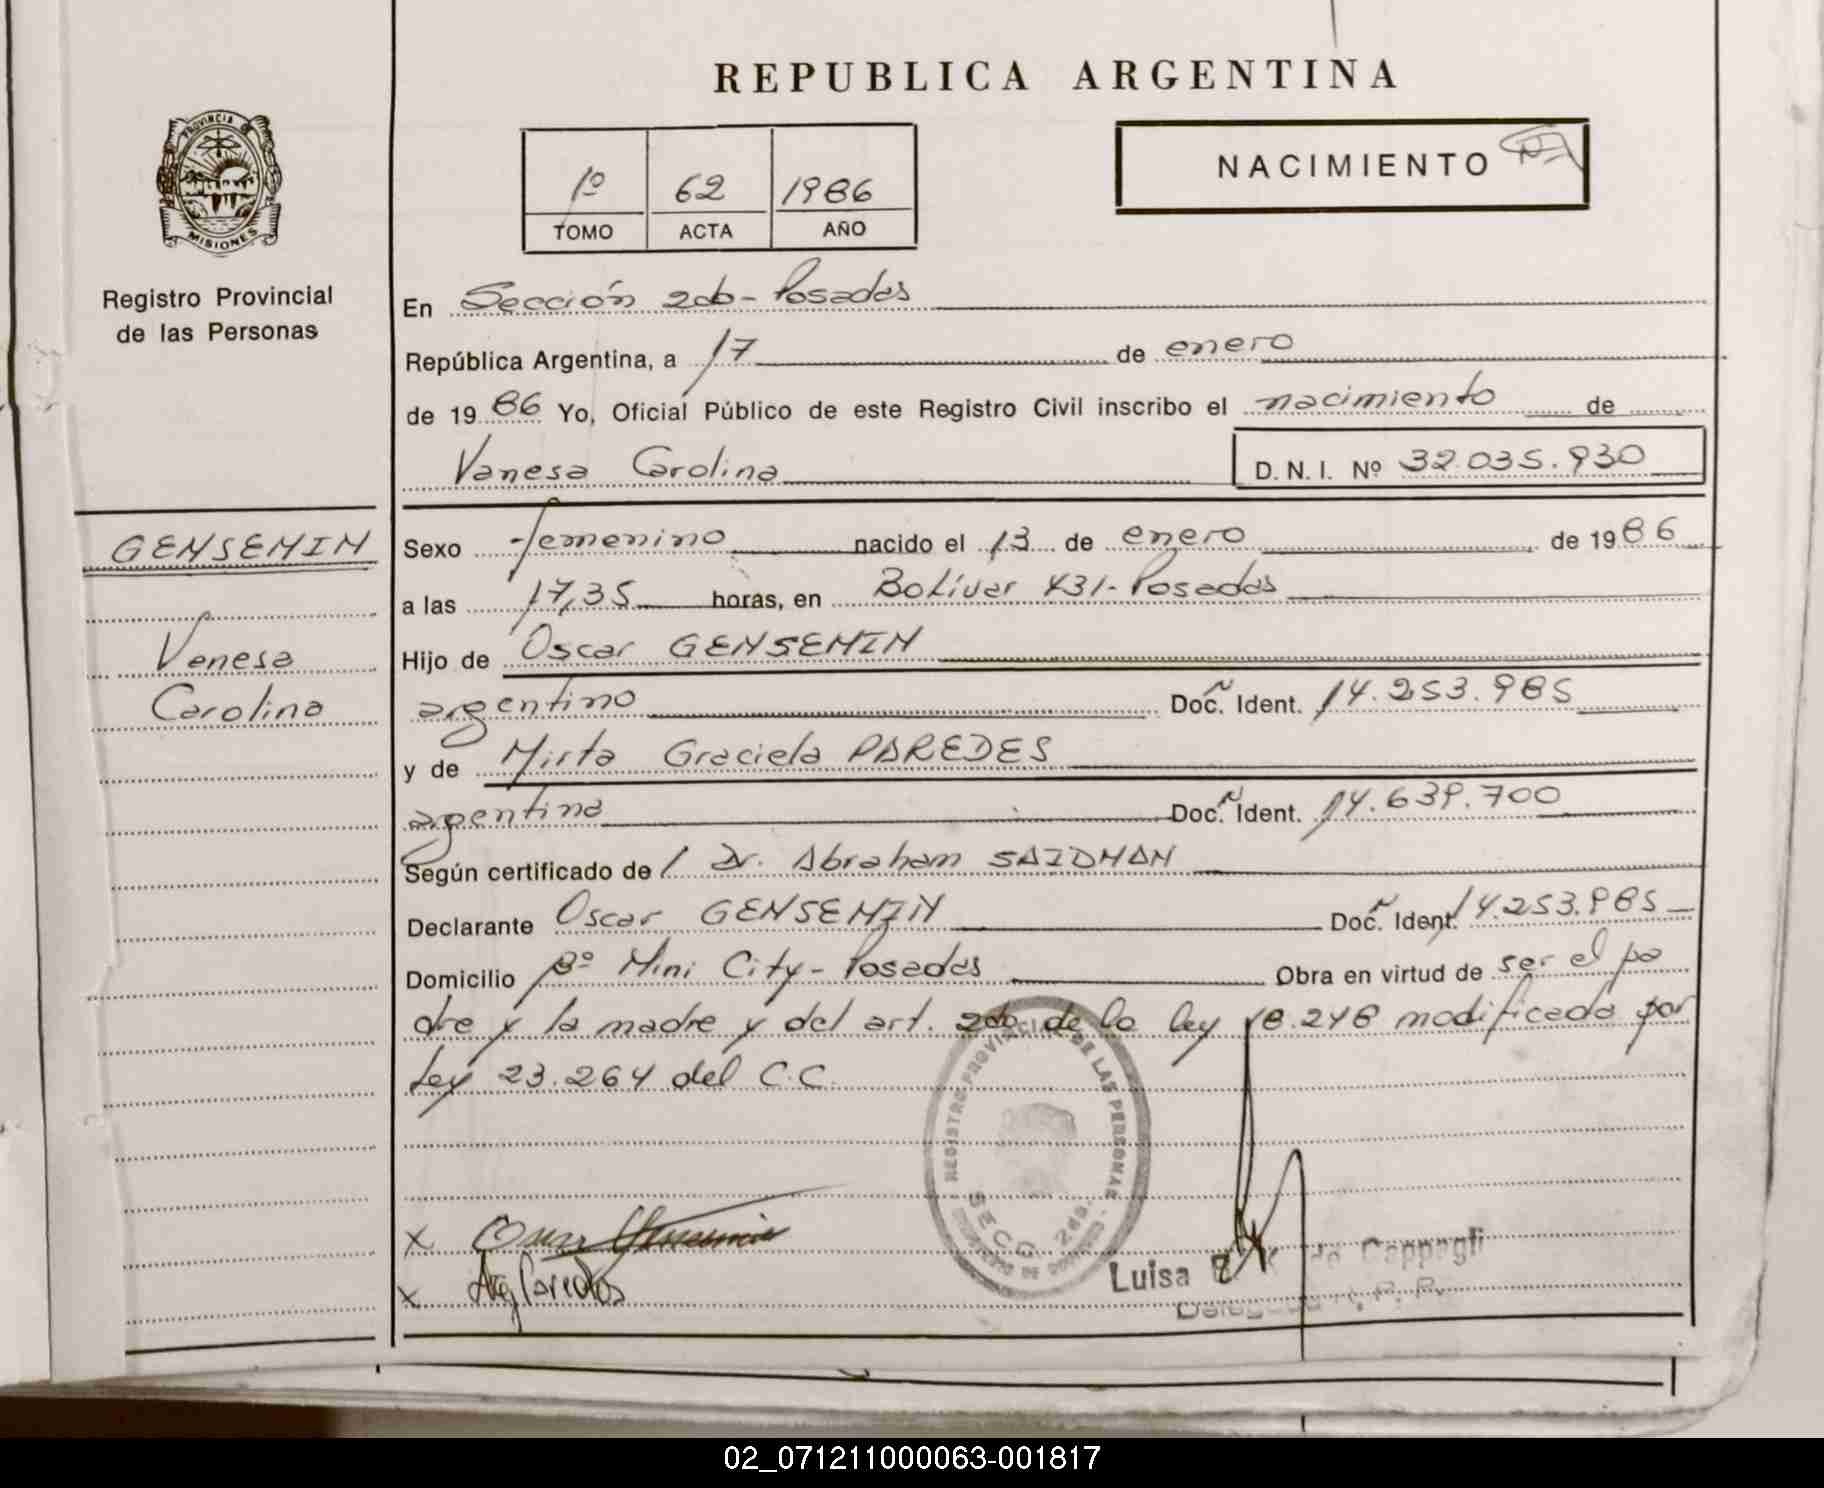 REPUBLICA ARGENTINA
PROVINCIA DE
MISIONES
Registro Provincial
de las Personas
1º 62 1986
TOMO ACTA AÑO
NACIMIENTO
En Sección 2da- Posadas
República Argentina, a 17 de enero
de 1986 Yo, Oficial Público de este Registro Civil inscribo el nacimiento de
Vanesa Carolina D. N. I. Nº 32.035.930
GENSEMIN
Vanesa
Carolina
Sexo femenino nacido el 13 de enero de 1986
a las 17,35 horas, en Bolívar 431- Posadas
Hijo de Oscar GENSEMIN
argentino Doc. Ident. 14.253.985
y de Mirta Graciela PAREDES
argentina Doc. Ident. 14.639.700
Según certificado de Dr. Abraham SAIDMAN
Declarante Oscar GENSEMIN Doc. Ident. 14.253.985
Domicilio Bº Mini City- Posadas Obra en virtud de ser el pa
dre y la madre y del art. 2do de la ley 18.248 modificada por
Ley 23.264 del C.C.
REGISTRO PROVINCIAL DE LAS PERSONAS
SECC. 2da.
x
x Paredes
Luisa de Cappagli
02_071211000063-001817